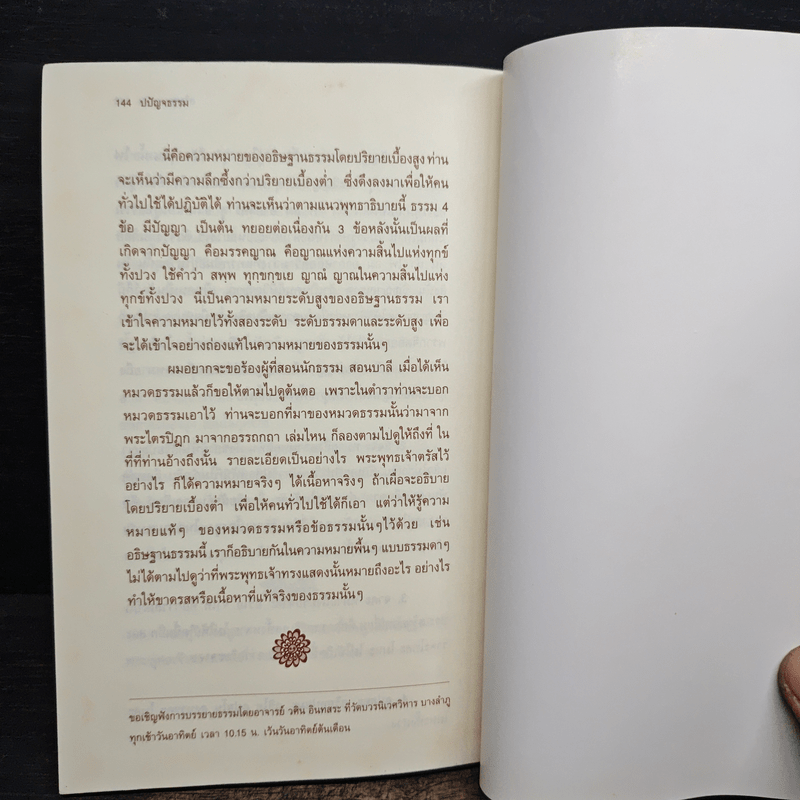 144 ปปัญจธรรม
นี่คือความหมายของอธิษฐานธรรมโดยปริยายเบื้องสูง ท่าน
จะเห็นว่ามีความลึกซึ้งกว่าปริยายเบื้องต่ำ ซึ่งดึงลงมาเพื่อให้คน
ทั่วไปใช้ได้ปฏิบัติได้ ท่านจะเห็นว่าตามแนวพุทธาธิบายนี้ ธรรม 4
ข้อ มีปัญญา เป็นต้น ทยอยต่อเนื่องกัน 3 ข้อหลังนั้นเป็นผลที่
เกิดจากปัญญา คือมรรคญาณ คือญาณแห่งความสิ้นไปแห่งทุกข์
ทั้งปวง ใช้คำว่า สพฺพ ทุกฺขกฺขเย ญาณํ ญาณในความสิ้นไปแห่ง
ทุกข์ทั้งปวง นี่เป็นความหมายระดับสูงของอธิษฐานธรรม เรา
เข้าใจความหมายไว้ทั้งสองระดับ ระดับธรรมดาและระดับสูง เพื่อ
จะได้เข้าใจอย่างถ่องแท้ในความหมายของธรรมนั้นๆ
ผมอยากจะขอร้องผู้ที่สอนนักธรรม สอนบาลี เมื่อได้เห็น
หมวดธรรมแล้วก็ขอให้ตามไปดูต้นตอ เพราะในตำราท่านจะบอก
หมวดธรรมเอาไว้ ท่านจะบอกที่มาของหมวดธรรมนั้นว่ามาจาก
พระไตรปิฎก มาจากอรรถกถา เล่มไหน ก็ลองตามไปดูให้ถึงที่ ใน
ที่ที่ท่านอ้างถึงนั้น รายละเอียดเป็นอย่างไร พระพุทธเจ้าตรัสไว้
อย่างไร ก็ได้ความหมายจริงๆ ได้เนื้อหาจริงๆ ถ้าเผื่อจะอธิบาย
โดยปริยายเบื้องต่ำ เพื่อให้คนทั่วไปใช้ได้ก็เอา แต่ว่าให้รู้ความ
หมายแท้ๆ ของหมวดธรรมหรือข้อธรรมนั้นๆไว้ด้วย เช่น
อธิษฐานธรรมนี้ เราก็อธิบายกันในความหมายพื้นๆ แบบธรรมดาๆ
ไม่ได้ตามไปดูว่าที่พระพุทธเจ้าทรงแสดงนั้นหมายถึงอะไร อย่างไร
ทำให้ขาดรสหรือเนื้อหาที่แท้จริงของธรรมนั้นๆ
ขอเชิญฟังการบรรยายธรรมโดยอาจารย์ วศิน อินทสระ ที่วัดบวรนิเวศวิหาร บางลำภู
ทุกเช้าวันอาทิตย์ เวลา 10.15 น. เว้นวันอาทิตย์ต้นเดือน